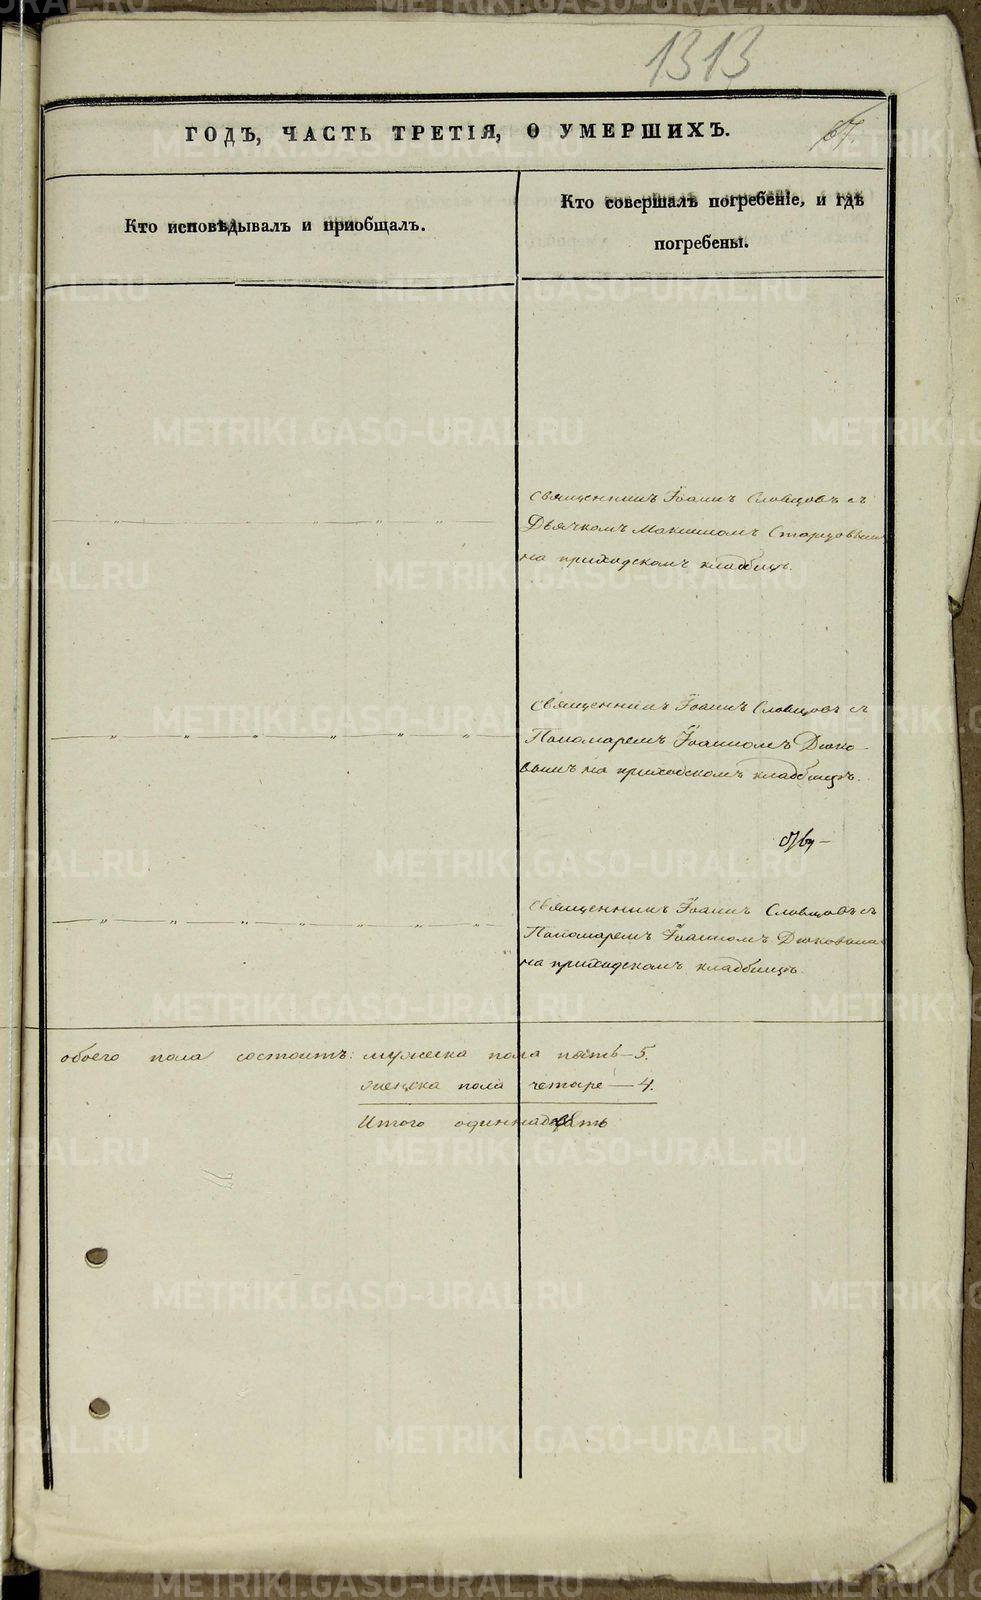 1313
ГОДЪ, ЧАСТЬ ТРЕТІЯ, О УМЕРШИХЪ.
67.
Кто исповѣдывалъ и пріобщалъ.
Кто совершалъ погребеніе, и гдѣ
погребены.
Священникъ Іоаннъ Словцовъ съ
Дьячкомъ Максимомъ Старцовымъ
на приходскомъ кладбищѣ.
Священникъ Іоаннъ Словцовъ съ
Пономаремъ Іоанномъ Дюко-
вымъ на приходскомъ кладбищѣ.
Священникъ Іоаннъ Словцовъ съ
Пономаремъ Іоанномъ Дюковымъ
на приходскомъ кладбищѣ
обоего пола состоитъ: мужеска пола пять — 5.
женска пола четыре — 4.
Итого одиннадцать
METRIKI.GASO-URAL.RU